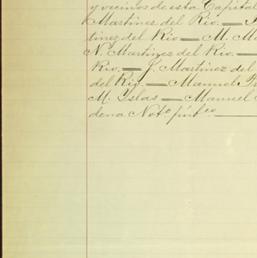 y vecinos de esta Capital
Martinez del Rio.—
tinez del Rio— M. M
N. Martinez del Rio.—
Rio.— J. Martinez del
del Rio— Manuel
M. Islas— Manuel
dena Noto púbco—